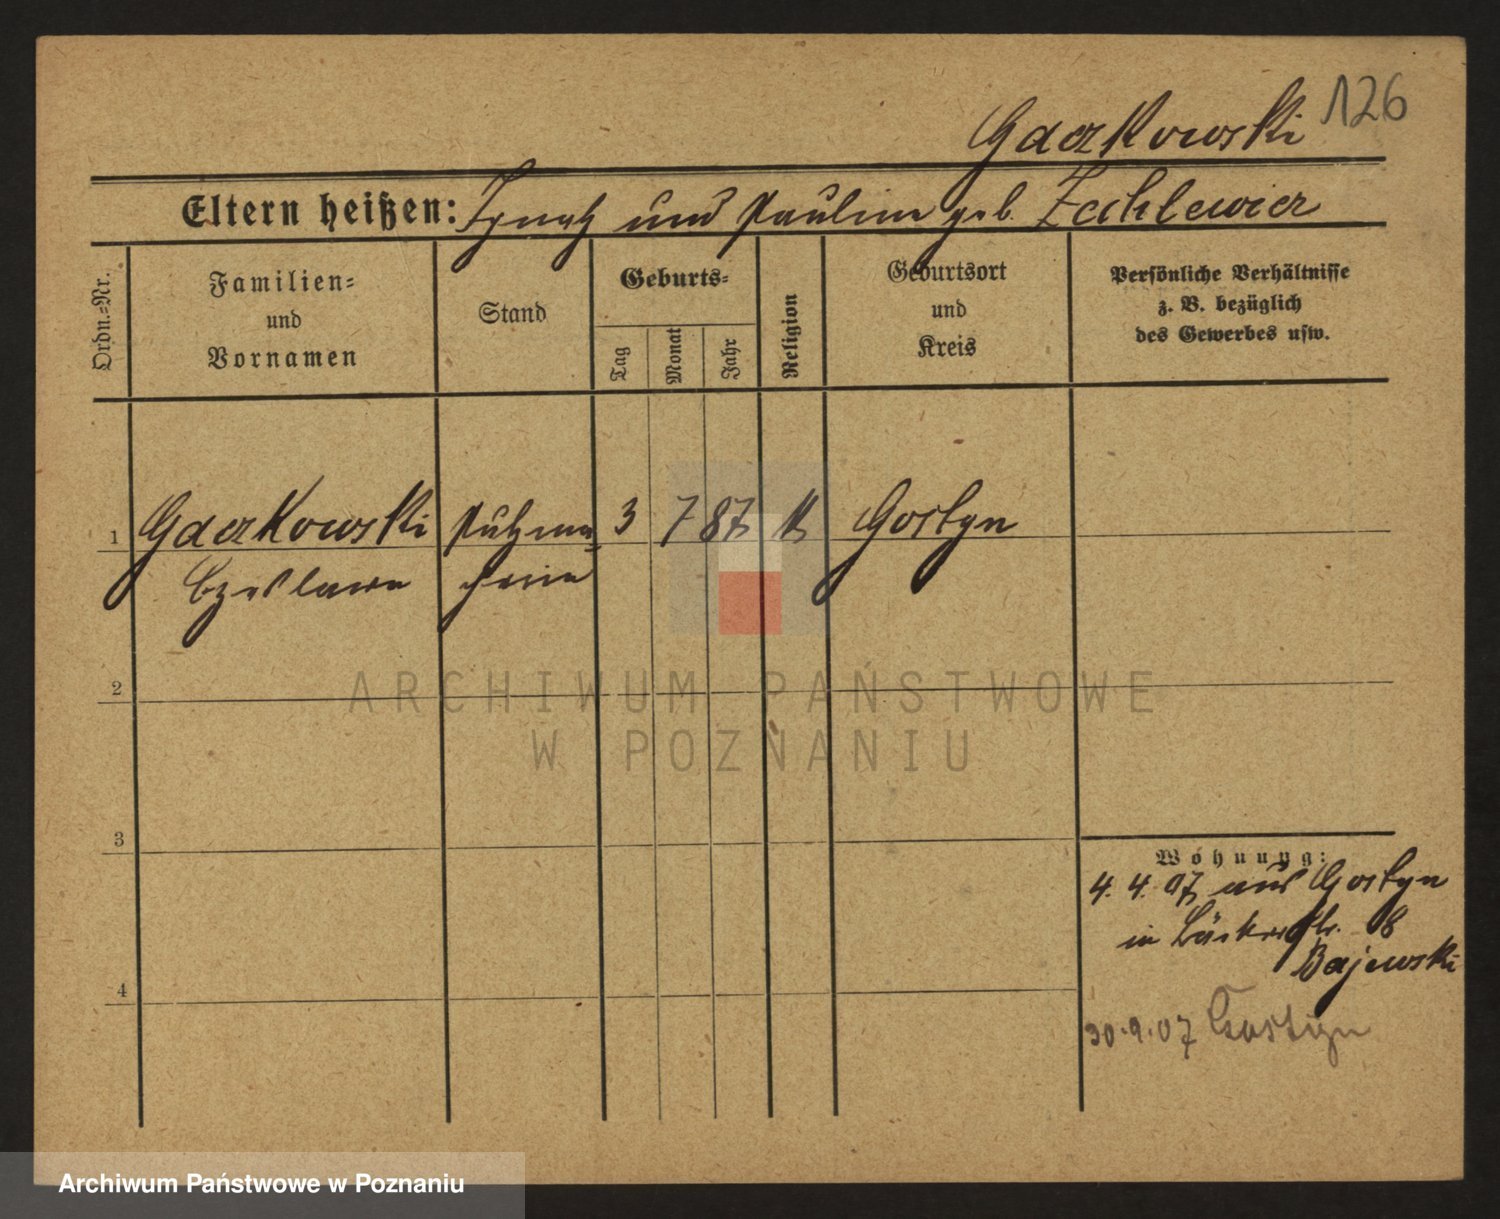 Gaczkowski 126
Eltern heißen: Ignatz und Pauline geb. Zechlewicz
Ordn.-Nr.
Familien-
und
Vornamen
Stand
Geburts-
Tag
Monat
Jahr
Religion
Geburtsort
und
Kreis
Persönliche Verhältnisse
z. B. bezüglich
des Gewerbes usw.
1 Gaczkowski Putzma- 3 7 87 K Gostyn
Czeslawa cherin
2
ARCHIWUM PAŃSTWOWE
W POZNANIU
3
Wohnung:
4. 4. 07 aus Gostyn
in Bäckerstr. 18
Bajewski
4
30.9.07 Gostyn
Archiwum Państwowe w Poznaniu